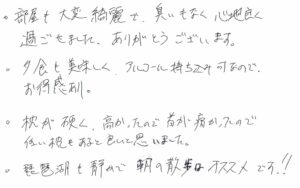 ・部屋も大変綺麗で、臭いもなく心地良く
過ごせました。ありがとうございます。
・夕食も美味しく、アルコール持ち込み可なので、
お得感あり。
・枕が硬く、高かったので首が痛かったので
低い枕もあると良いと思いました。
・琵琶湖も静かで朝の散歩はオススメです!!